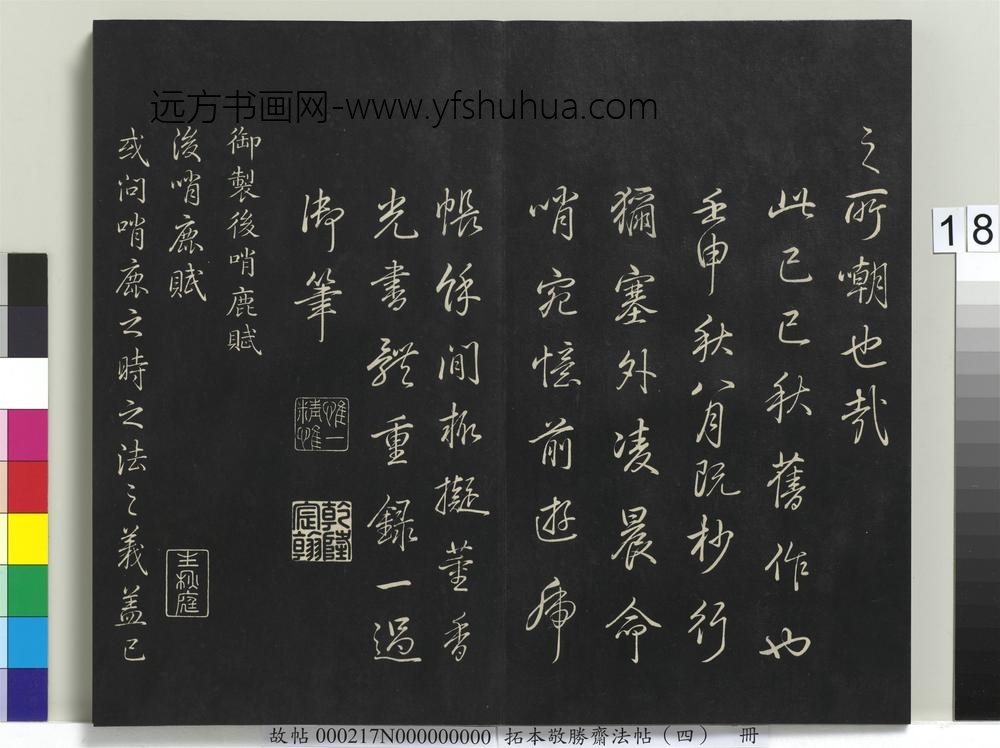 远方书画网-www.yfshuhua.com
之所嘲也哉
此己巳秋舊作也
壬申秋八月既杪行
獮塞外凌晨命
哨宛憶前遊虎
帳餘閒輒擬董香
光書體重録一過
御筆
惟精惟一
乾隆宸翰
御製後哨鹿賦
後哨鹿賦
或问哨鹿之時之法之義盖已
18
故帖 000217N000000000 拓本敬勝齋法帖（四） 冊